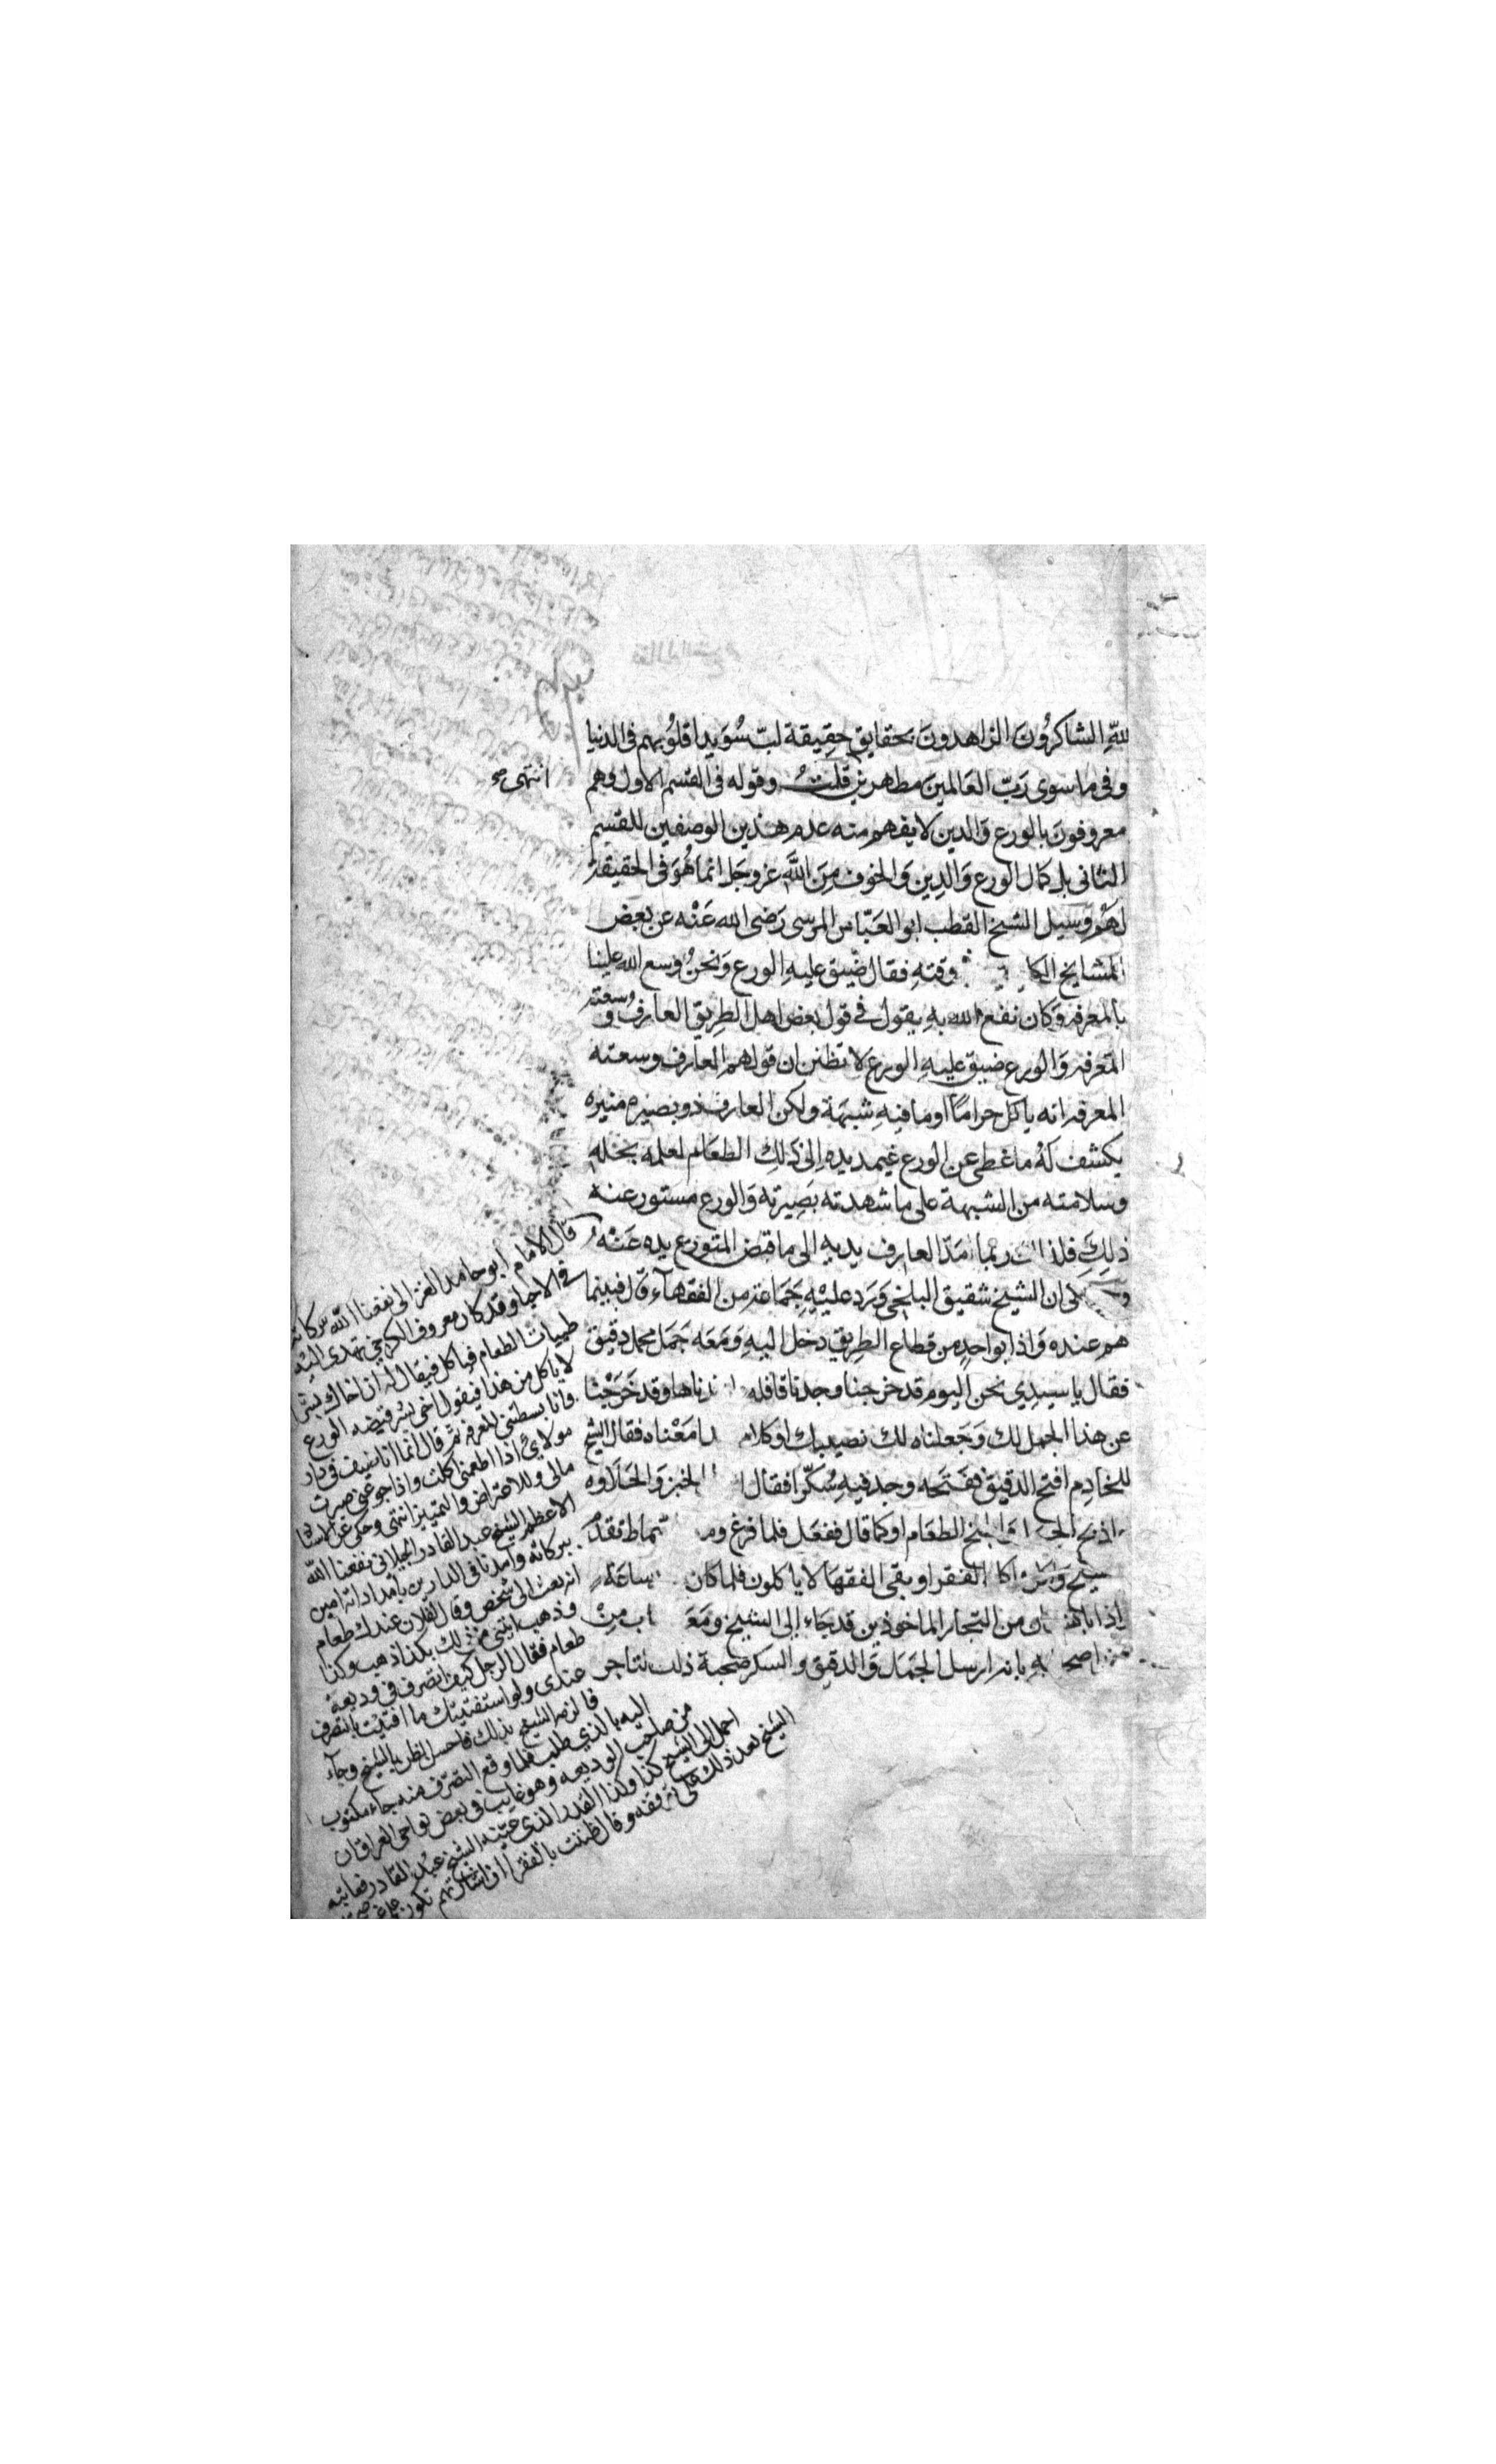 لله الشاكرُونَ الزاهدونَ بحقايق حقِيقة لبّ سُوَيدا قلُوبهم فى الدنيا
وفى ما سوى رَبّ العَالمينَ مطهرين قلتُ وقوله فى القسم الاول وهم
انتهى صح
معروفونَ بالورع وَالدين لا يفهم منه عدم هذين الوصفين للقسم
الثانى بل كمال الورع وَالدِين وَالخوف مِنَ اللَّهِ عز وجَل انما هُوَ فى الحقيقة
لهُم وَسيل الشيخ القطب ابو العَبّاس المرسى رَضى الله عَنْه عن بعض
المشايخ وقتهِ فقال ضيق عليهِ الورع وَنحنُ وسع الله علينا
بالمعرفه وَكان نفع الله بهِ يقول فى قول بعض اهل الطرِيق العارف وسعته
المعرفه وَالورع ضيق عليهِ الورع لا تظنن ان قولهم العارف وسعته
المعرفه انه ياكل حرامًا او ما فيهِ شبهة ولكن العارف ذو بصيره منيره
يكشف لهُ ما غطى عن الورع فيمد يده اِلى ذلِك الطعَام لعلمه بحله
وسلامته من الشبهة على ما شهدته بَصِيرته وَالورع مستور عنه
ذلِكَ ربما مَدّ العارف يديه الى ما قبض المتورع يده عَنْه
ان الشيخ شقيق البلخى وَرَدَ عليْهِ جَمَاعة من الفقهآء قال فبينما
هم عنده وَاذا بواحدٍ من قطاع الطرِيق دخل اليهِ وَمَعَه جَمَل محمل دقيق
فقال يا سيدِي نحن اليوم قد خرجنا وجدنا قافله وقد خَرَجْنا
عن هذا الجمل لك وَجَعلناه لك نصيبك او كلام مَعْناه فقال الشيخ
للخادِم افتح الدقيق ففتَحه وجد فيهِ سُكّرا فقال الخبز وَالحَلاوه
اذبح وَاطبخ الطعَام او كما قال ففعَل فلما فرغ تقدمُ
الفقرا وبقى الفقهَا لا ياكلون فلما كان ساعَة
اذا من التجار الماخوذين قد جَاء اِلى الشيخ ومَعَه مِنْ
بانه ارسل الجمَل وَالدقيق والسكر صُحبة ذلك التاجر
قال الامام ابو حامد الغزالى نفعنا الله ببركاته
فى الاحيا وقد كان معروف الكرخى يهدى اليْه
طيبات الطعام فياكل فيقال له ان اخاك بشرا
لا ياكل من هذا فيقول اخى بشر قبضه الورع
وانا بسطتنى المعرفه ثم قال انما انا ضيف فى دار
مولاى اذا اطعمنى اكلت واذا جوعنى صبرت
مالى وللاعتراض والتمييز انتهى وحكى عن الاستاذ
الاعظم الشيخ عبد القادر الجيلانى نفعنا الله
ببركاته وامدنا فى الدارين بامداداته امين
انه بعث الى شخص وقال لفلان عندك طعام
وذهب ائتنى من ذلك بكذا ذهب وكذا
طعام فقال الرجل كيف اتصرف فى وديعة
عندى ولو استفتيتك ما افتيت بالتصرف
فالزمه الشيخ بذلك فاحسن الظن بالشيخ وجآء
اليه بالذى طلب فلما وقع التصرف منه جاء مكتوب
من صاحب الوديعه وهو غايب فى بعض نواحى العراق ان
احمل الى الشيخ كذا وكذا القدر الذى عيّنه الشيخ عبد القادر فعاتبه
الشيخ بعد ذلك على توقفه وقال ظننت بالفقرا ان اشارتهم تكون على غير